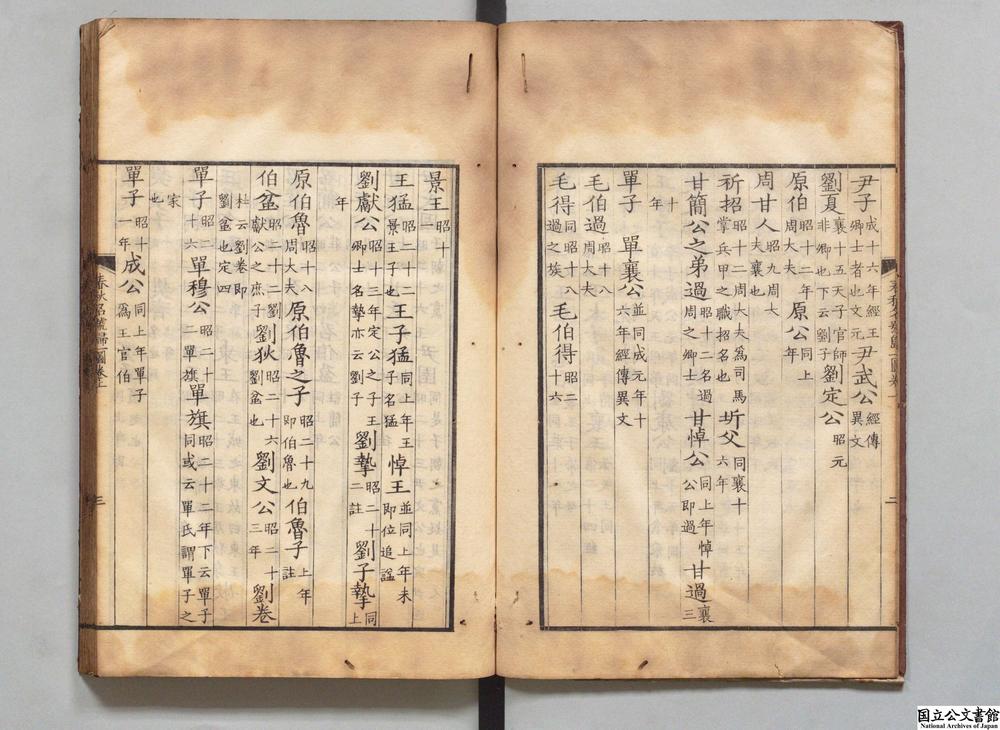 尹子成十六年經王卿士者也文元尹武公經傳異文
劉夏襄十五天子官師劉定公昭元
非卿也下云劉子
原伯昭十二年周大夫原公同上年
周甘人昭九周大夫襄也
祈招昭十二周大夫爲司馬掌兵甲之職招名也圻父同襄十六年
甘簡公之弟過昭十二名過周之卿士甘悼公同上年悼公即過甘過襄三
十年
單子單襄公並同成元年十六年經傳異文
毛伯過昭十八周大夫
毛得同昭十八過之族毛伯得昭二十六
二
景王昭十一
王猛昭二十二景王子也王子猛同上年王子名猛悼王並同上年未即位追諡
劉獻公昭十三年定公之子王卿士名摯亦云劉子劉摯昭二十二註劉子摯同上
年
原伯魯昭十八周大夫原伯魯之子昭二十九即伯魯也伯魯子上年註
伯盆昭二十二劉獻公之庶子劉狄昭二十六劉盆也劉文公昭二十三年劉卷
杜云劉卷即劉盆也定四
單子昭二十六單穆公昭二十二單旗單旗昭二十二年下云單子同或云單氏謂單子之
家也
單子昭十一年成公同上年單子爲王官伯
春秋名號歸一圖卷上
三
国立公文書館
National Archives of Japan